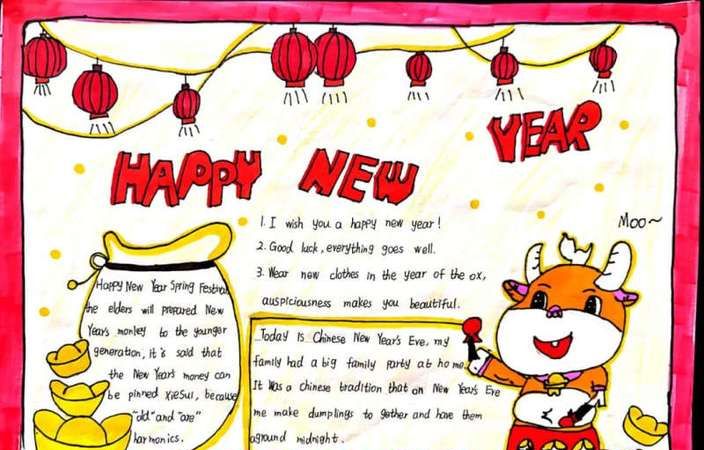 HAPPY NEW YEAR
1. I wish you a happy new year!
2. Good luck, everything goes well.
3. Wear new clothes in the year of the ox,
auspiciousness makes you beautiful.
Moo~
Happy New Year Spring Festival
the elders will prepared New
Year's monley to the younger
generation, it's said that
the New Year's money can
be pinned XieSui, because
"old" and "are"
harmonics.
Today is Chinese New Year's Eve, my
family had a big family party at home.
It was a chinese tradition that on New Year's Eve
me make dumplings to gether and have them
aground midnight.